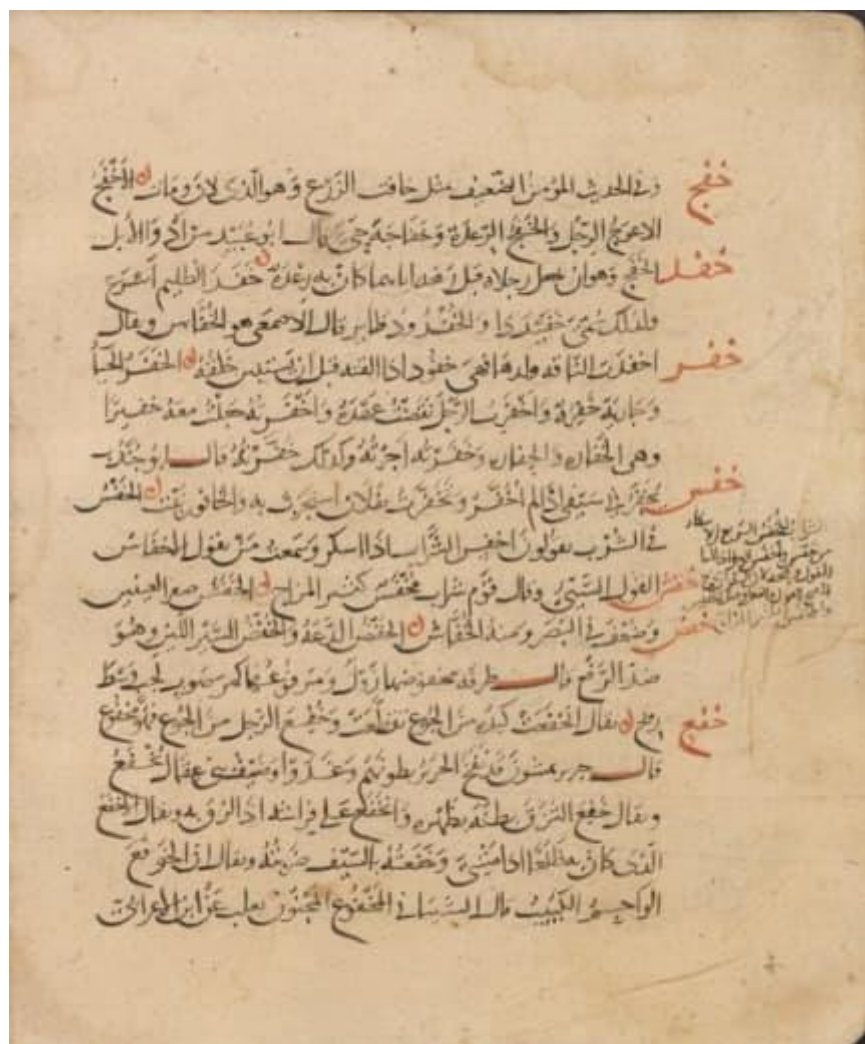 خفج
وفي الحديث المؤمن الضعيف مثل خافت الزرع وهو الذي لان ومات الأخفج
الاعوج الرجل والخفج الرعدة وخفاجة حي قال ابو عبيد من ادواء الابل
خفد
الخفج وهو ان رجلاه قبل رفعه اياهما كان به رعدة خفد الظليم اسرع
ولذلك سمي خفيددا والخفدود طاير قال الاصمعي هو الخفاش ويقال
خفر
اخفدت الناقه ولدها فهي خفود اذا القته قبل ان يستبين خلقه الخفر الحياء
وجارية خفرة واخفرت الرجل نقضت عهده واخفرته جعلت معه خفيرا
وهي الخفارة والخفارة وخفرته اجرته وكذلك خفرته قال ابو جندب
خفس
يخفرني سيفي اذا لم اخفر وتخفرت بفلان استجرت به والخافور نبت الخفس
في الشرب يقولون اخفس الشراب اذا اسكر وسمعت من يقول الخفاس
خفش
القول السيئ وقال قوم شراب مخفس كثير المزاج الخفش صغر العينين
خفض
وضعف في البصر ومنه الخفاش الخفض الدعة والخفض السير اللين وهو
ضد الرفع قال طرفه مخفوضها زول ومرفوعها كمر صوب لجب وسط
خفع
ريح يقال انخفعت كبده من الجوع تقطعت وخفع الرجل من الجوع فهو مخفوع
قال جرير يمشون قد نفخ الخزير بطونهم وغدوا وضيف بني عقال يخفع
ويقال خفع بطنه بظهره وانخفع على فراشه اذا لزق به ويقال الخفع
الذي كان به اذا مشى وخفعته بالسيف ضربته ويقال ان الخوفع
الواجم الكئيب قال الشيباني المخفوع المجنون ثعلب عن ابن الاعرابي